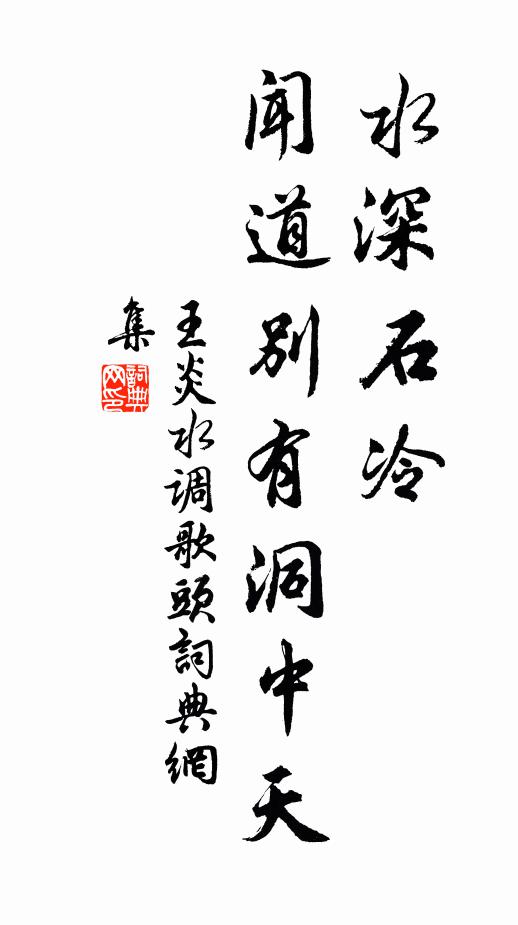 水深石冷
闻道别有洞中天
王炎水调歌頭詞典網
集
詞典
网印